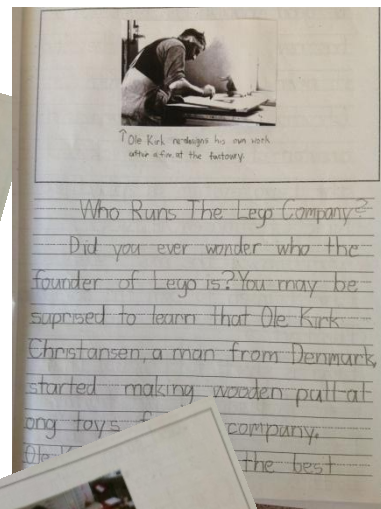 ↑Ole Kirk re-designs his own work
after a fire at the factoury.
Who Runs The Lego Company?
Did you ever wonder who the
founder of Lego is? You may be
suprised to learn that Ole Kirk
Christansen, a man from Denmark,
started making wooden pull-at
ong toys company.
Ole the best